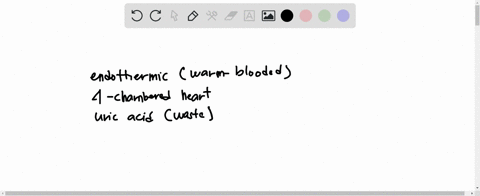 endothermic (warm-blooded)
4-chambered heart
uric acid (waste)